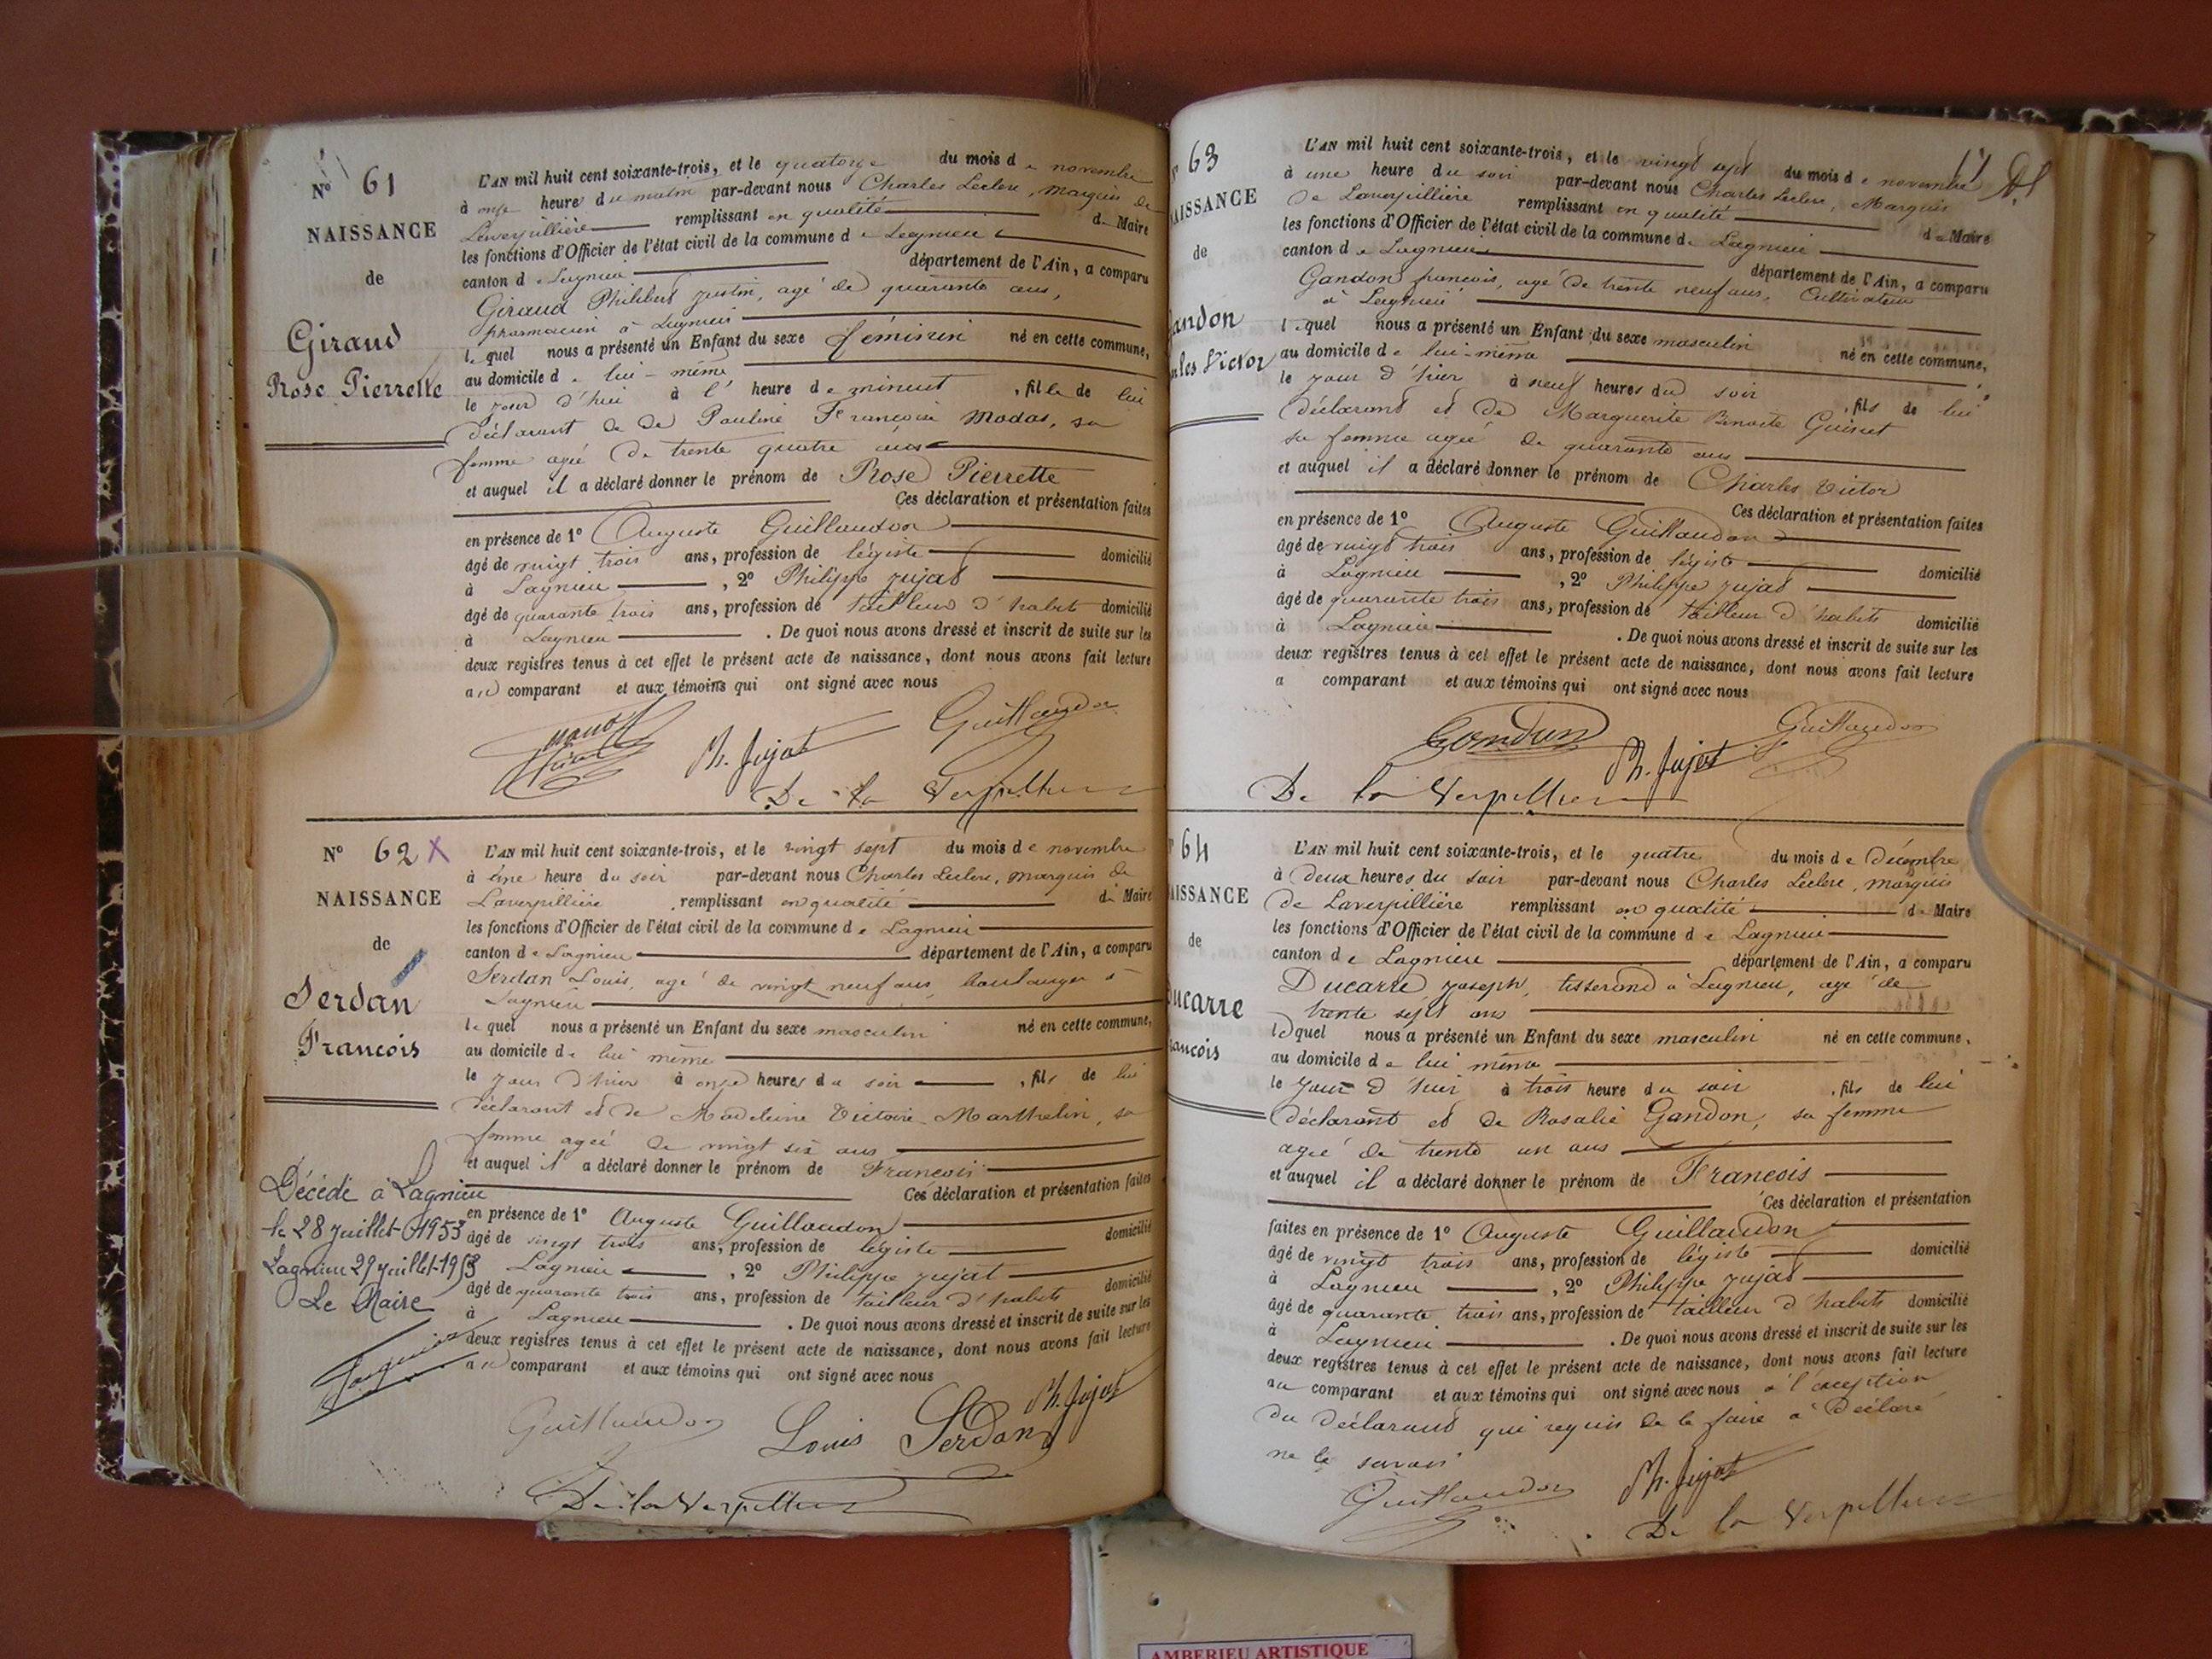 N° 61
NAISSANCE
de
Giraud
Rose Pierrette
L'AN mil huit cent soixante-trois, et le quatorze du mois de novembre
à onze heures du matin par-devant nous Charles Leclerc, Marquis de
Laverpillière remplissant en qualité de Maire
les fonctions d'Officier de l'état civil de la commune de Lagnieu
canton de Lagnieu département de l'Ain, a comparu
Giraud Philibert Justin, agé de quarante ans,
pharmacien à Lagnieu
lequel nous a présenté un Enfant du sexe féminin né en cette commune,
au domicile de lui-même
le jour d'hier à l'heure de minuit, fille de lui
déclarant et de Pauline Françoise Modas, sa
femme agée de trente quatre ans
et auquel il a déclaré donner le prénom de Rose Pierrette
Ces déclaration et présentation faites
en présence de 1° Auguste Guillaudon
âgé de vingt trois ans, profession de légiste domicilié
à Lagnieu, 2° Philippe Jujat
âgé de quarante trois ans, profession de tailleur d'habits domicilié
à Lagnieu. De quoi nous avons dressé et inscrit de suite sur les
deux registres tenus à cet effet le présent acte de naissance, dont nous avons fait lecture
au comparant et aux témoins qui ont signé avec nous
Guillaudon
Ph. Jujat
De la Verpillière
N° 62 X
NAISSANCE
de
Serdan
François
L'AN mil huit cent soixante-trois, et le vingt sept du mois de novembre
à une heure du soir par-devant nous Charles Leclerc, marquis de
Laverpillière remplissant en qualité de Maire
les fonctions d'Officier de l'état civil de la commune de Lagnieu
canton de Lagnieu département de l'Ain, a comparu
Serdan Louis, agé de vingt neuf ans, boulanger à
Lagnieu
lequel nous a présenté un Enfant du sexe masculin né en cette commune,
au domicile de lui même
le jour d'hier à onze heures du soir, fils de lui
déclarant et de Madeleine Victoire Marthelin, sa
femme agée de vingt six ans
et auquel il a déclaré donner le prénom de François
Ces déclaration et présentation faites
en présence de 1° Auguste Guillaudon
âgé de vingt trois ans, profession de légiste domicilié
Lagnieu, 2° Philippe Jujat
âgé de quarante trois ans, profession de tailleur d'habits domicilié
à Lagnieu. De quoi nous avons dressé et inscrit de suite sur les
deux registres tenus à cet effet le présent acte de naissance, dont nous avons fait lecture
au comparant et aux témoins qui ont signé avec nous
Décédé à Lagnieu
le 28 juillet 1953
Lagnieu 29 juillet 1953
Le Maire
Ph. Jujat
Guillaudon Louis Serdan
De la Verpillière
63
AISSANCE
de
andon
les Victor
L'AN mil huit cent soixante-trois, et le vingt sept du mois de novembre
à une heure du soir par-devant nous Charles Leclerc, Marquis
de Laverpillière remplissant en qualité de Maire
les fonctions d'Officier de l'état civil de la commune de Lagnieu
canton de Lagnieu département de l'Ain, a comparu
Gandon françois, agé de trente neuf ans, Cultivateur
à Lagnieu
lequel nous a présenté un Enfant du sexe masculin né en cette commune,
au domicile de lui-même
le jour d'hier à neuf heures du soir, fils de lui
déclarant et de Marguerite Benoite Guinet
sa femme agée de quarante ans
et auquel il a déclaré donner le prénom de Charles Victor
Ces déclaration et présentation faites
en présence de 1° Auguste Guillaudon
âgé de vingt trois ans, profession de légiste domicilié
à Lagnieu, 2° Philippe Jujat
âgé de quarante trois ans, profession de tailleur d'habits domicilié
à Lagnieu. De quoi nous avons dressé et inscrit de suite sur les
deux registres tenus à cet effet le présent acte de naissance, dont nous avons fait lecture
a comparant et aux témoins qui ont signé avec nous
Gondon Guillaudon
Ph. Jujat
De la Verpillière
64
AISSANCE
de
ucarre
rancois
L'AN mil huit cent soixante-trois, et le quatre du mois de Décembre
à Deux heures du soir par-devant nous Charles Leclerc, marquis
de Laverpillière remplissant en qualité de Maire
les fonctions d'Officier de l'état civil de la commune de Lagnieu
canton de Lagnieu département de l'Ain, a comparu
Ducarre Joseph, tisserand à Lagnieu, agé de
trente sept ans
lequel nous a présenté un Enfant du sexe masculin né en cette commune,
au domicile de lui même
le jour d'hier à trois heure du soir, fils de lui
déclarant et de Rosalie Gandon, sa femme
agée de trente un ans
et auquel il a déclaré donner le prénom de François
Ces déclaration et présentation
faites en présence de 1° Auguste Guillaudon
âgé de vingt trois ans, profession de légiste domicilié
à Lagnieu, 2° Philippe Jujat
âgé de quarante trois ans, profession de tailleur d'habits domicilié
à Lagnieu. De quoi nous avons dressé et inscrit de suite sur les
deux registres tenus à cet effet le présent acte de naissance, dont nous avons fait lecture
au comparant et aux témoins qui ont signé avec nous à l'exception
du déclarant qui requis de le faire a déclaré
ne le savoir
Guillaudon Ph. Jujat
De la Verpillière
AMBERIEU ARTISTIQUE